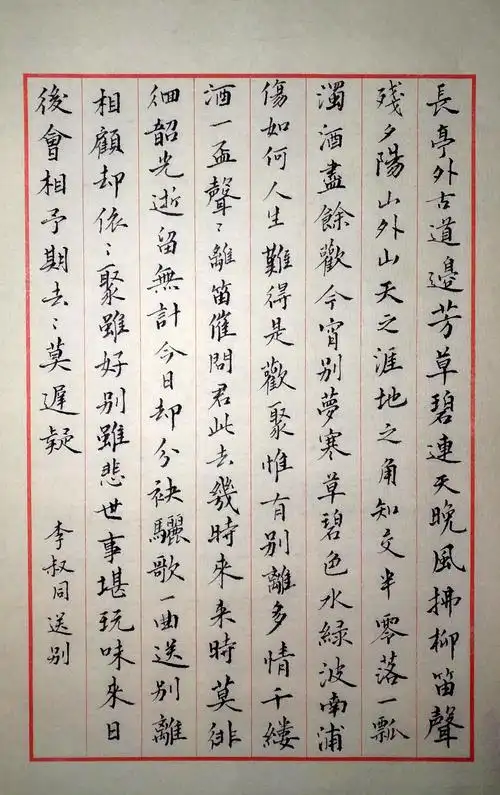 長亭外古道邊芳草碧連天晚風拂柳笛聲
殘夕陽山外山天之涯地之角知交半零落一瓢
濁酒盡餘歡今宵別夢寒草碧色水綠波南浦
傷如何人生難得是歡聚惟有別離多情千縷
酒一盃聲〻離笛催問君此去幾時來来時莫徘
徊韶光逝留無計今日却分袂驪歌一曲送別離
相顧却依〻聚雖好別雖悲世事堪玩味來日
後會相予期去〻莫遲疑
李叔同送別